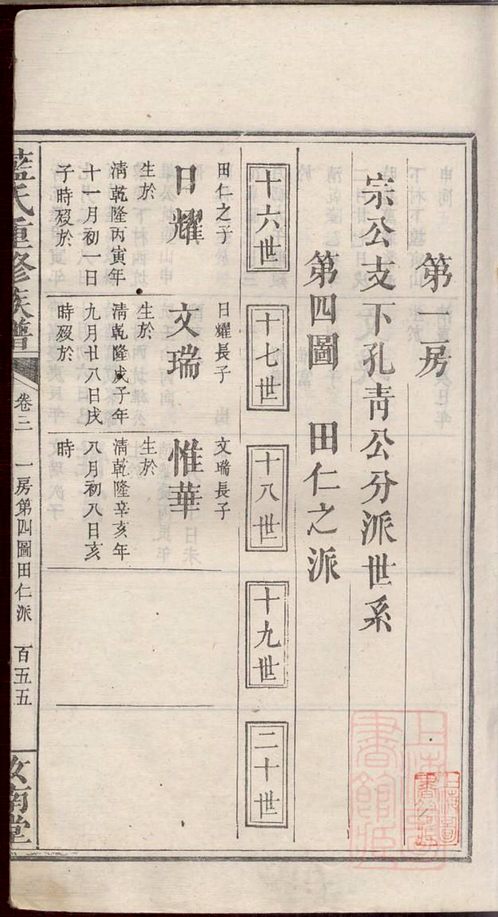 第一房
宗公支下孔青公分派世系
第四圖 田仁之派
十六世
十七世
十八世
十九世
二十世
田仁之子
日耀
生於
清乾隆丙寅年
十一月初一日
子時歿於
日耀長子
文瑞
生於
清乾隆戊子年
九月廿八日戌
時歿於
文瑞長子
惟華
生於
清乾隆辛亥年
八月初八日亥
時
藍氏重修族譜
卷二
一房第四圖田仁派
百五五
汝南堂